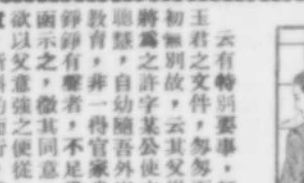 云有特別要事，
玉君之文件，匆匆
初無別故，云其父
將爲之許字某公使
聰慧，自幼隨吾外
教育，非一得官家
錚錚有聲者，不足
函示之，徵其同意
欲以父意強之使從